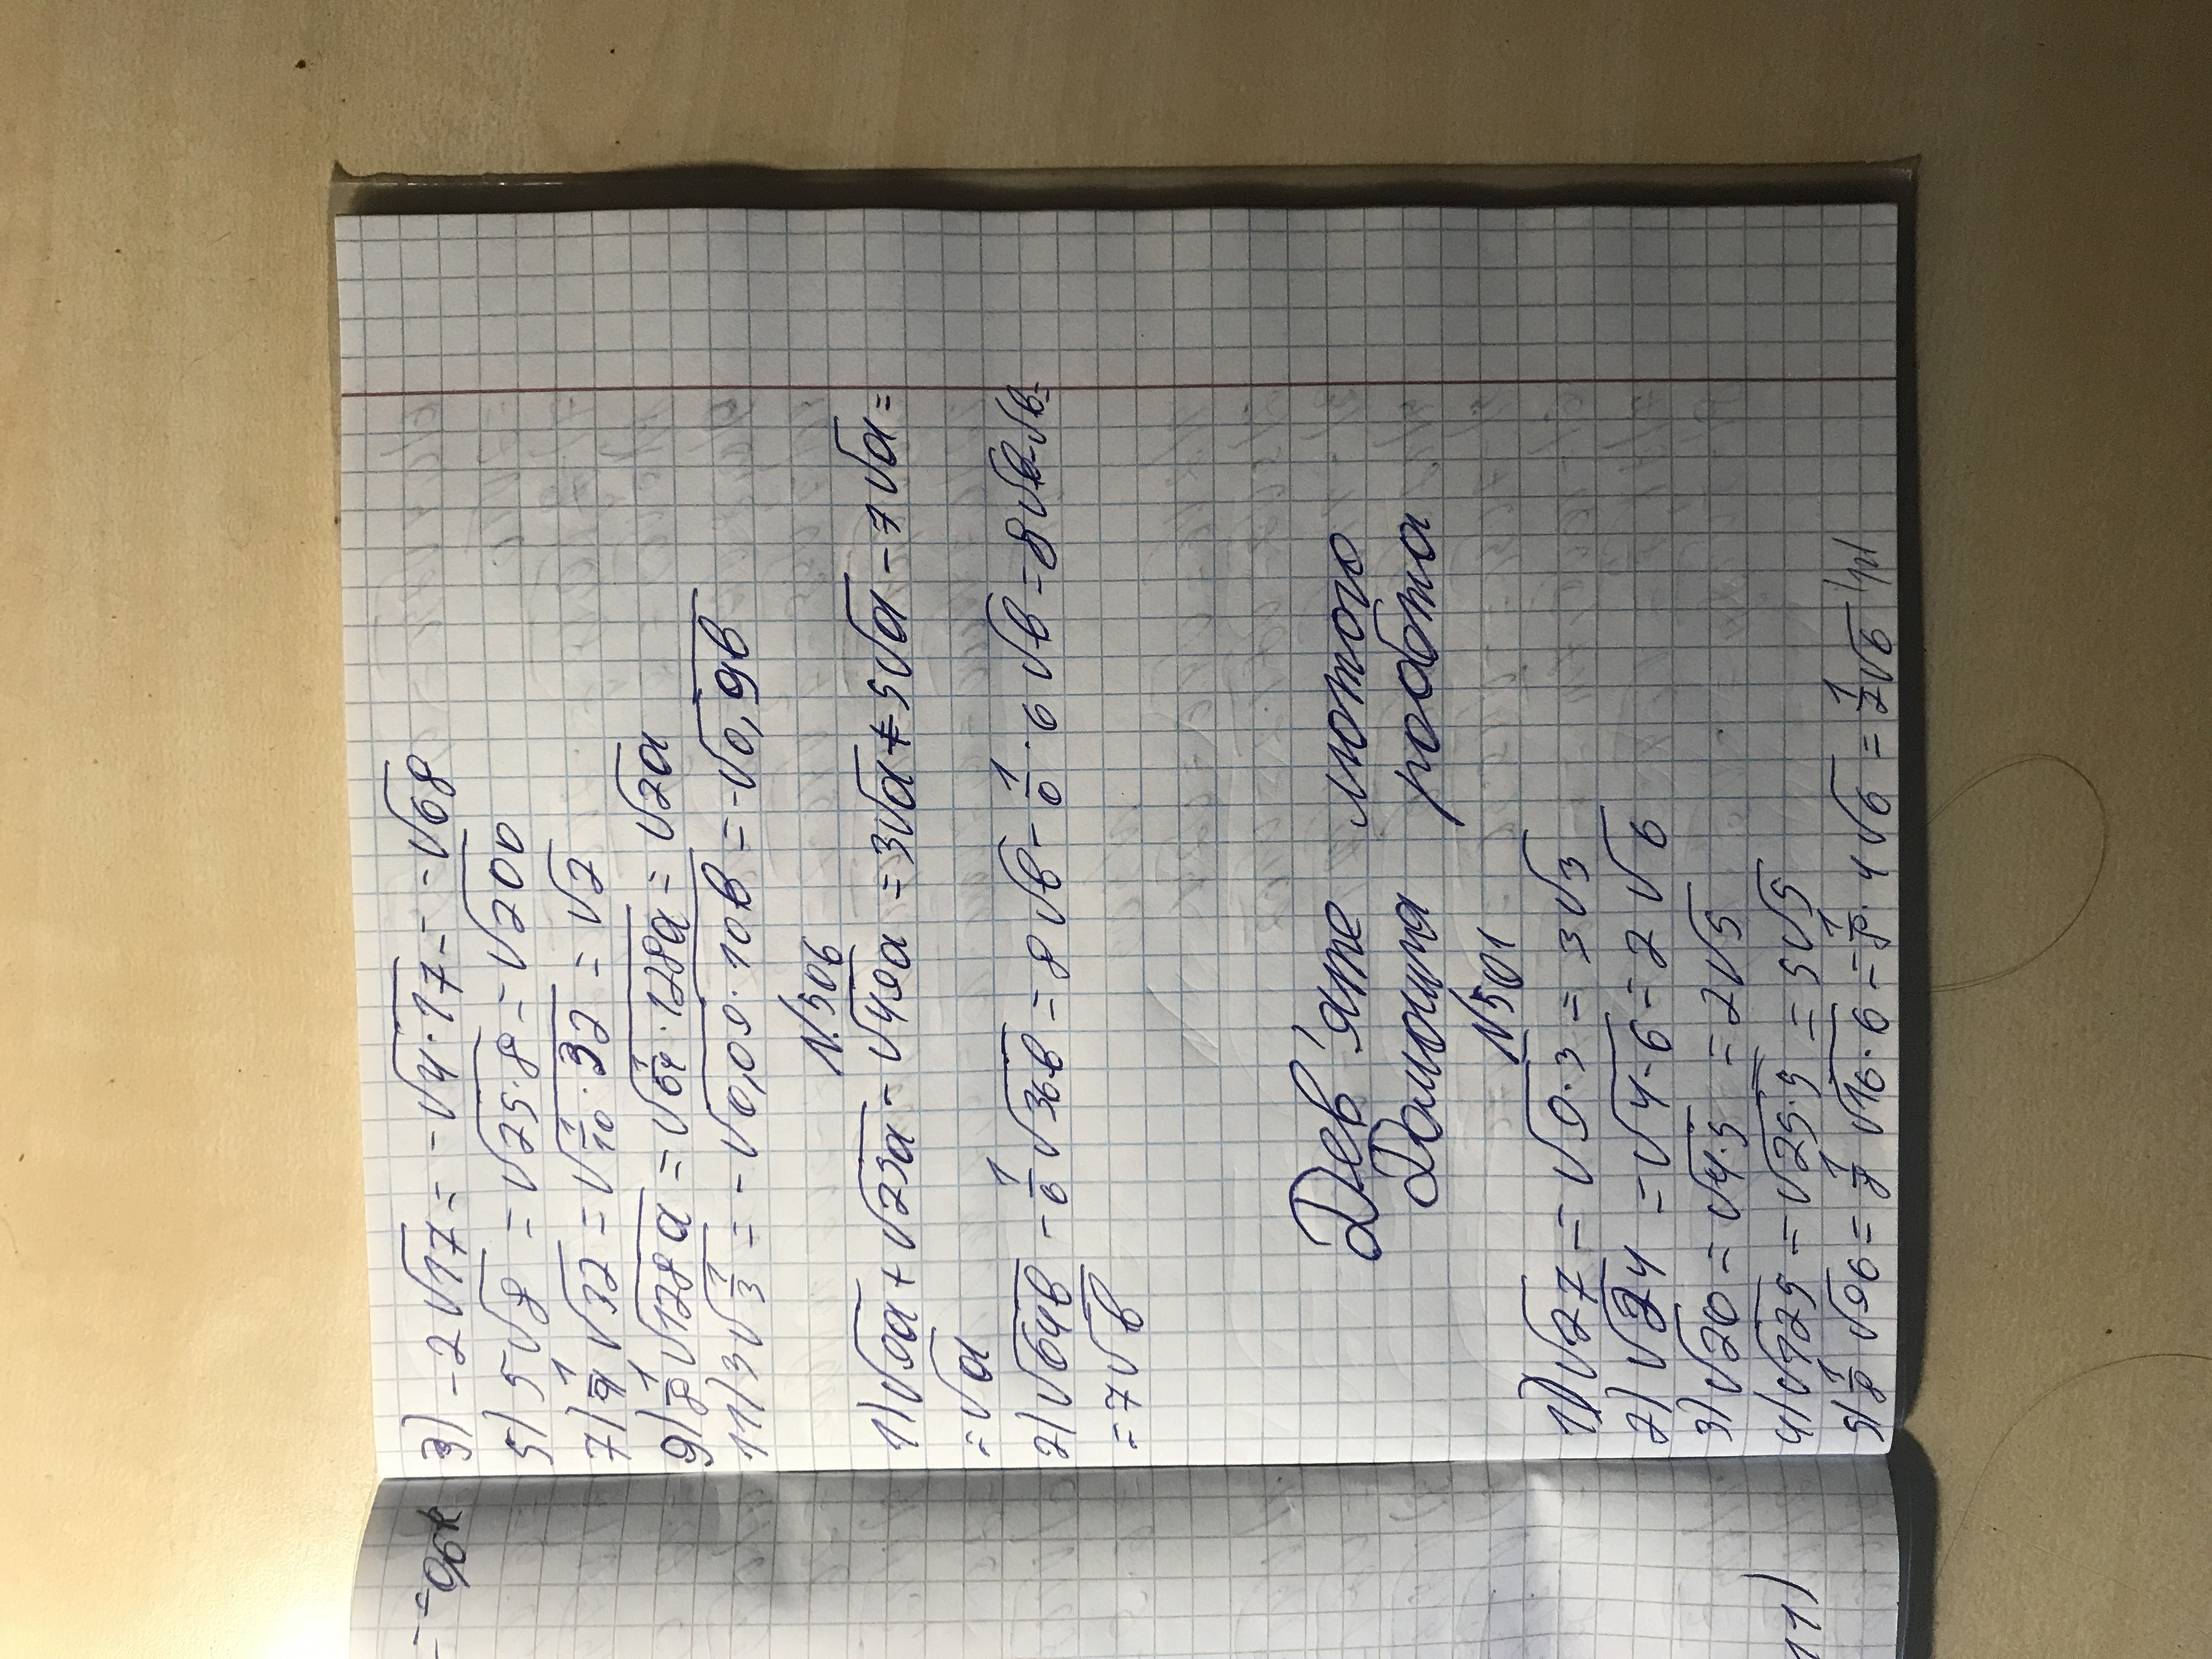 = = 96к
3) -2√17 = -√4·17 = -√68
5) 5√8 = √25·8 = √200
7) 1/4 √32 = √1/10·32 = √2
9) 1/8 √128a = √1/64·128a = √2a
11) 3√1/3 = -√0,09·10в = -√0,9в
№506
1) √9a + √25a - √49a = 3√a + 5√a - 7√a =
= √a
2) √64в - 1/6 √36в = 8√в - 1/6·6√в = 8√в-√в=
= 7√в
Дев'яте лютого
Домашня робота
№501
1) √27 = √9·3 = 3√3
2) √24 = √4·6 = 2√6
3) √20 = √4·5 = 2√5
4) √125 = √25·5 = 5√5
5) 1/8 √96 = 1/8 √16·6 = 1/8·4√6 = 1/2√6
11)